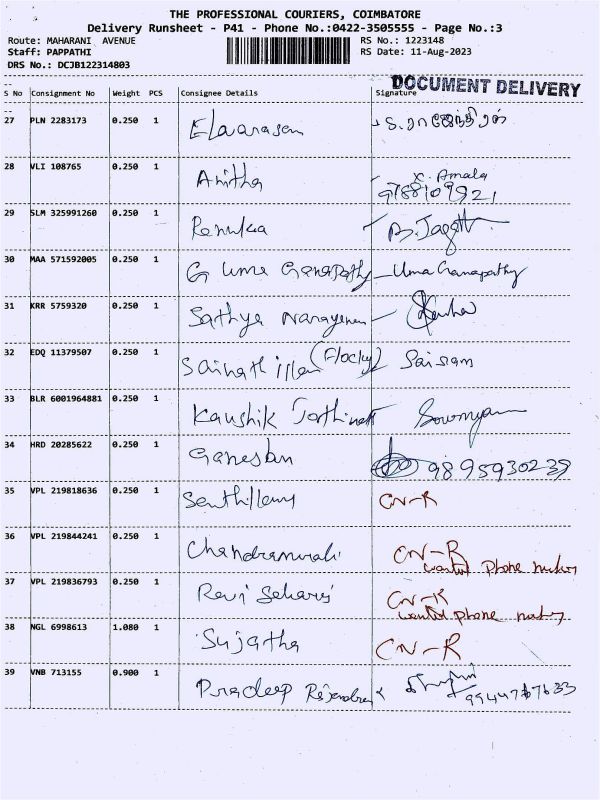 THE PROFESSIONAL COURIERS, COIMBATORE
Delivery Runsheet - P41 - Phone No.:0422-3505555 - Page No.:3
Route: MAHARANI AVENUE RS No.: 1223148
Staff: PAPPATHI RS Date: 11-Aug-2023
DRS No.: DCJB122314803
DOCUMENT DELIVERY
S No Consignment No Weight PCS Consignee Details Signature
27 PLN 2283173 0.250 1 Elavarasan
28 VLI 108765 0.250 1 Anitha K. Amala
9788109921
29 SLM 325991260 0.250 1 Renuka
30 MAA 571592005 0.250 1 G Uma Ganapathy Uma Ganapathy
31 KRR 5759320 0.250 1 Sathya Narayanan
32 EDQ 11379507 0.250 1 Sainath illam Sairam
33 BLR 6001964881 0.250 1 Kaushik Sowmya
34 HRD 20285622 0.250 1 Ganesan 9895930239
35 VPL 219818636 0.250 1 CN-R
36 VPL 219844241 0.250 1 Chandramurali CN-R
wanted Phone number
37 VPL 219836793 0.250 1 Ravi CN-R
wanted phone number
38 NGL 6998613 1.080 1 Sujatha CN-R
39 VNB 713155 0.900 1 Pradeep Rajendran